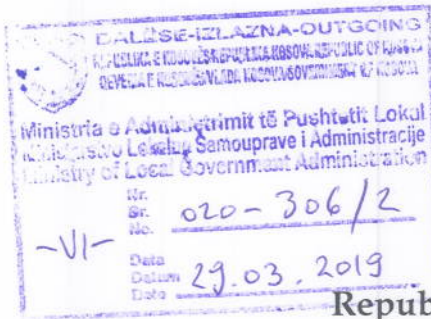 DALËSE-IZLAZNA-OUTGOING
REPUBLIKA E KOSOVËS-REPUBLIKA KOSOVA-REPUBLIC OF KOSOVO
QEVERIA E KOSOVËS-VLADA KOSOVA-GOVERNMENT OF KOSOVA
Ministria e Administrimit të Pushtetit Lokal
Ministarstvo Lokalne Samouprave i Administracije
Ministry of Local Government Administration
Nr.
Br. 020-306/2
No.
-VI-
Data
Datum 29.03.2019
Date
Repub